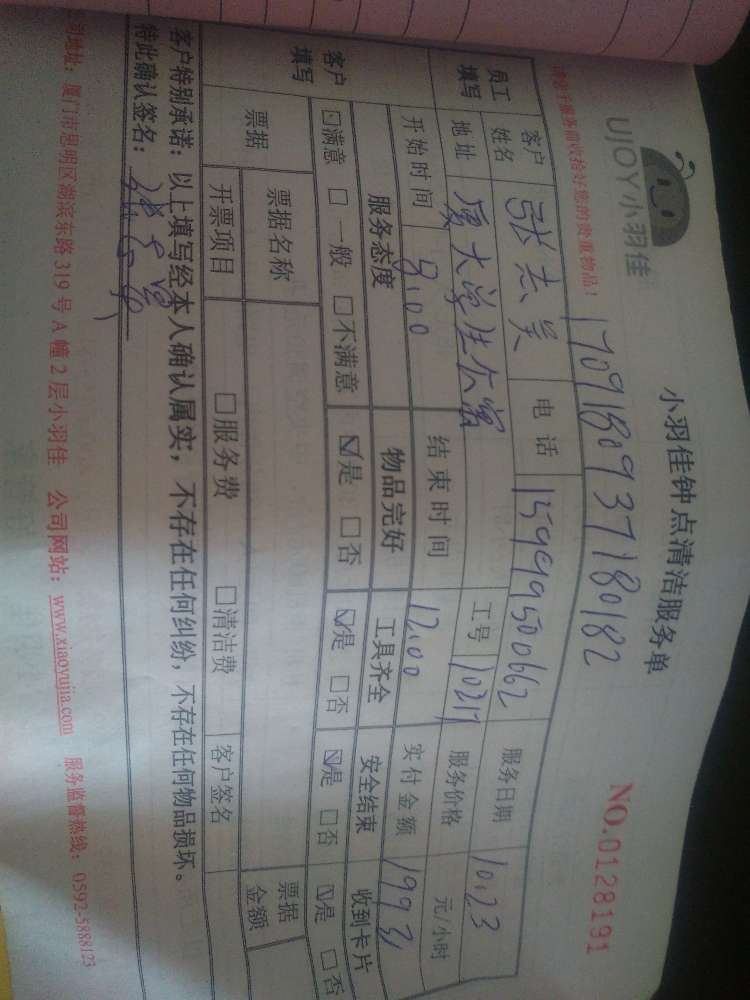 UJOY小羽佳
小羽佳钟点清洁服务单
NO.0128191
请您于服务前收拾好您的贵重物品！
1709180937180182
员工填写
客户姓名 张志昊 电话 15999500662 服务日期 10.23
地址 工号 10217 服务价格 元/小时
开始时间 8:00 结束时间 12:00 实付金额
客户填写
服务态度 物品完好 工具齐全 安全结束 收到卡片
☑满意 □一般 □不满意 ☑是 □否 ☑是 □否 ☑是 □否 ☑是 □否
票据 票据名称 票据金额
开票项目 □服务费 □清洁费 客户签名
客户特别承诺：以上填写经本人确认属实，不存在任何纠纷，不存在任何物品损坏。
特此确认签名：
公司地址：厦门市思明区湖滨东路319号A幢2层小羽佳 公司网站：www.xiaoyujia.com 服务监督热线：0592-5888123